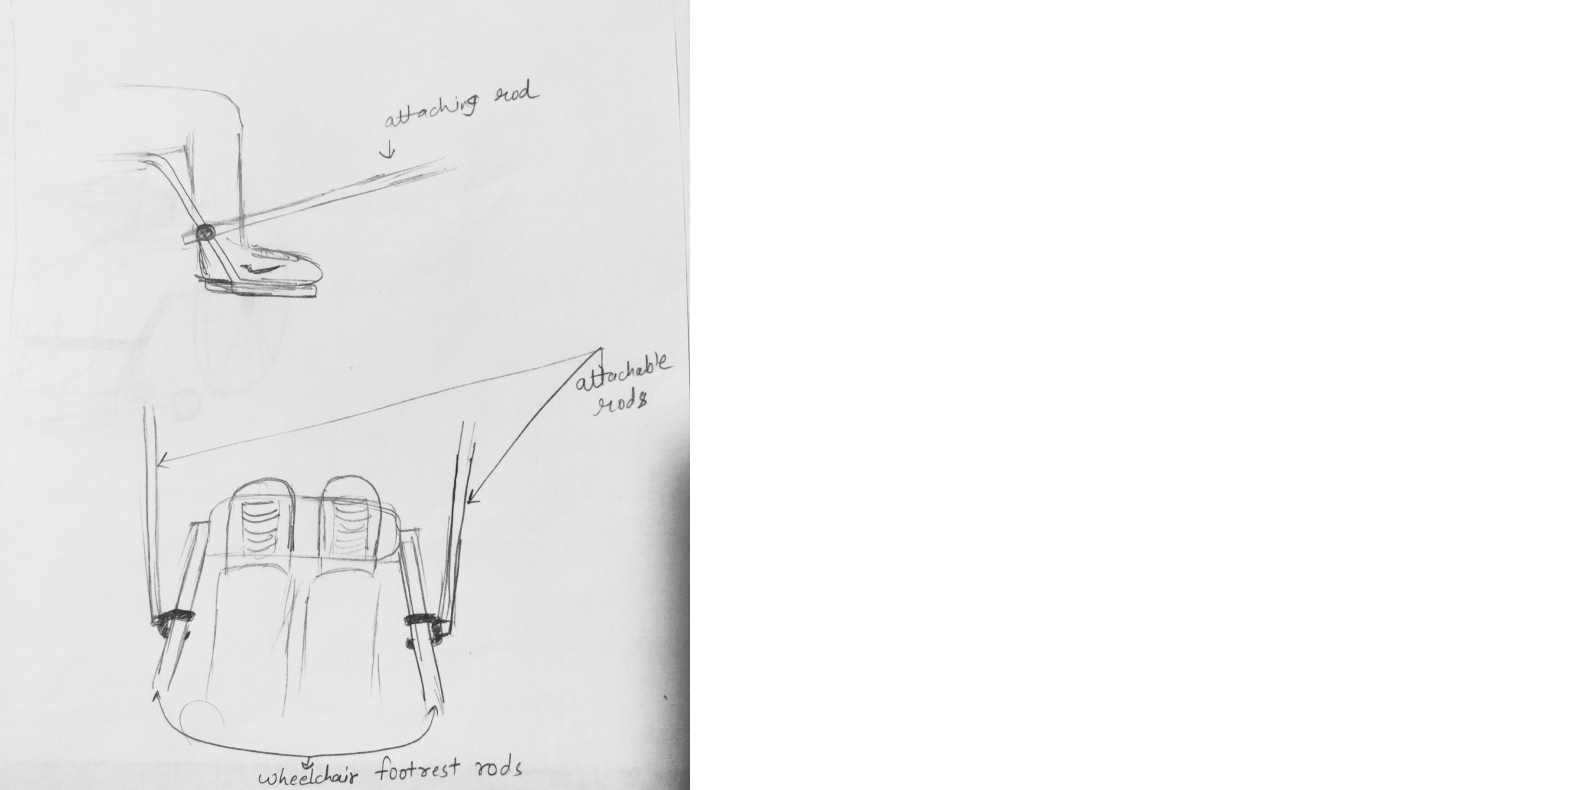 attaching rod
attachable
rods
wheelchair footrest rods